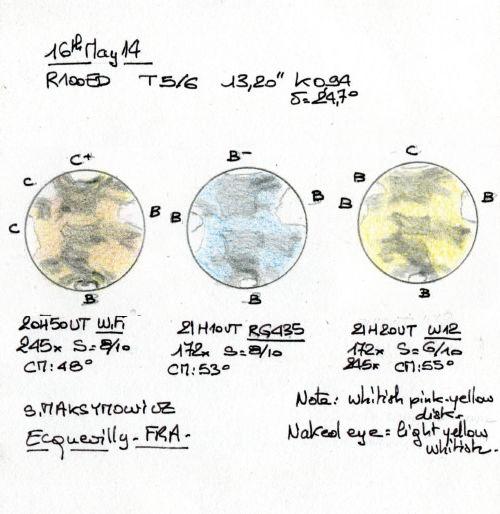 16th May 14
R100ED T5/6 13,20" K 0.94
δ=24,7°
C+
C
C
B
B
B-
B
B
B
C
B
B
B
B
20H50UT W.Fi
245x S=8/10
CM:48°
21H10UT RG435
172x S=8/10
CM:53°
21H20UT W12
172x S=6/10
245x CM:55°
S.MAKSYMOWICZ
Ecquevilly-FRA-
Note: whitish pink-yellow
disk.
Naked eye = light yellow
whitish.